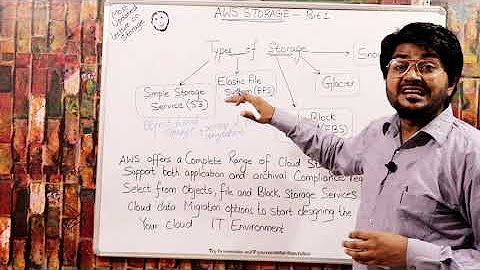 Most
Updated
Lecture on
Storage
AWS STORAGE - Part 1
Types of Storage
Simple Storage
Service (S3)
Elastic File
System (EFS)
Glacier
Block
(EBS)
AWS offers a Complete Range of Cloud
Support both application and archival Compliance
Select from Objects, File and Block Storage Services
Cloud data Migration options to start designing the
Your Cloud IT Environment